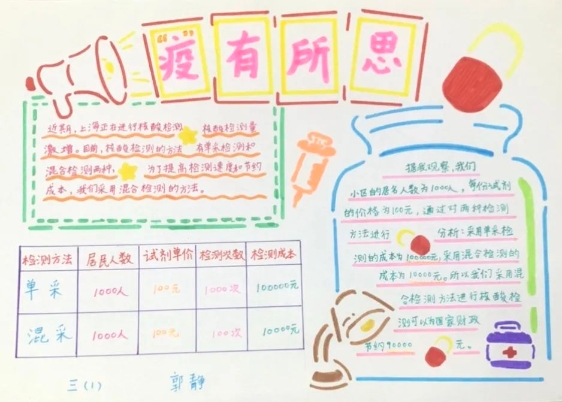 疫有所思
近期，上海正在进行核酸检测 核酸检测量
激增。目前，核酸检测的方法 有单采检测和
混合检测两种。 为了提高检测速度和节约
成本，我们采用混合检测的方法。
据我观察，我们
小区的居民人数为1000人，每份试剂
的价格为100元，通过对两种检测
方法进行 分析：采用单采检
测的成本为100000元，采用混合检测的
成本为10000元。所以我们采用混
合检测方法进行核酸检
测可以为国家财政
节约90000 元。
检测方法 居民人数 试剂单价 检测次数 检测成本
单采 1000人 100元 1000次 100000元
混采 1000人 100元 100次 10000元
三（1） 郭静